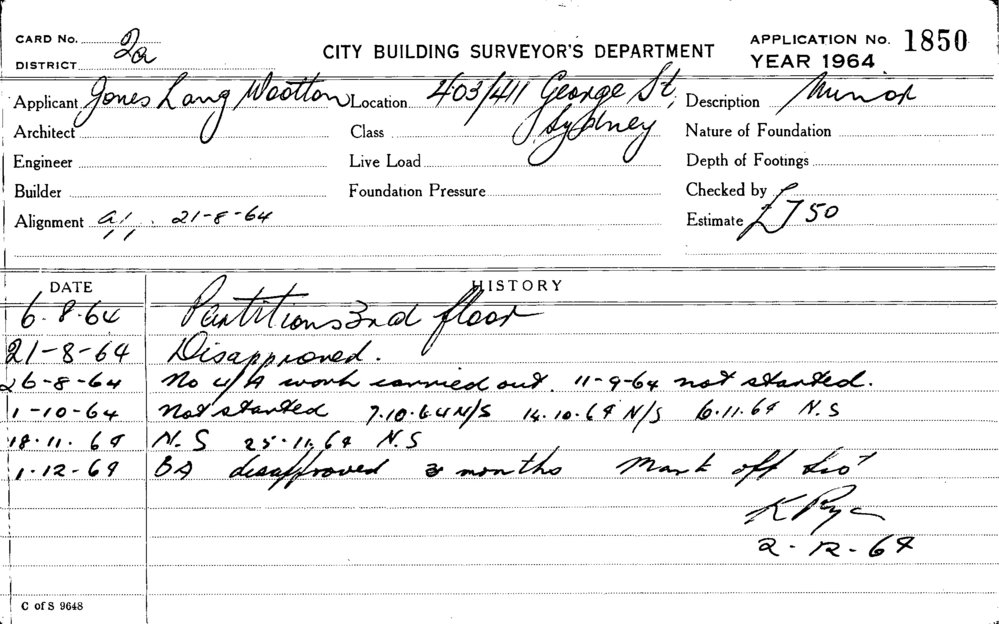 CARD No. 2a
CITY BUILDING SURVEYOR'S DEPARTMENT
APPLICATION No. 1850
DISTRICT
YEAR 1964
Applicant Jones Lang Wootton Location 403/411 George St, Description Minor
Architect Class Sydney Nature of Foundation
Engineer Live Load Depth of Footings
Builder Foundation Pressure Checked by
Alignment 21-8-64 Estimate £750
DATE HISTORY
6-8-64 Partitions 3rd floor
21-8-64 Disapproved.
26-8-64 No U/A work carried out. 11-9-64 not started.
1-10-64 Not started 7.10.64 N/S 14.10.64 N/S 6.11.64 N.S
18.11.64 N.S 25.11.64 N.S
1.12.64 BA disapproved 3 months Mark off list
K
2-12-64
C of S 9648